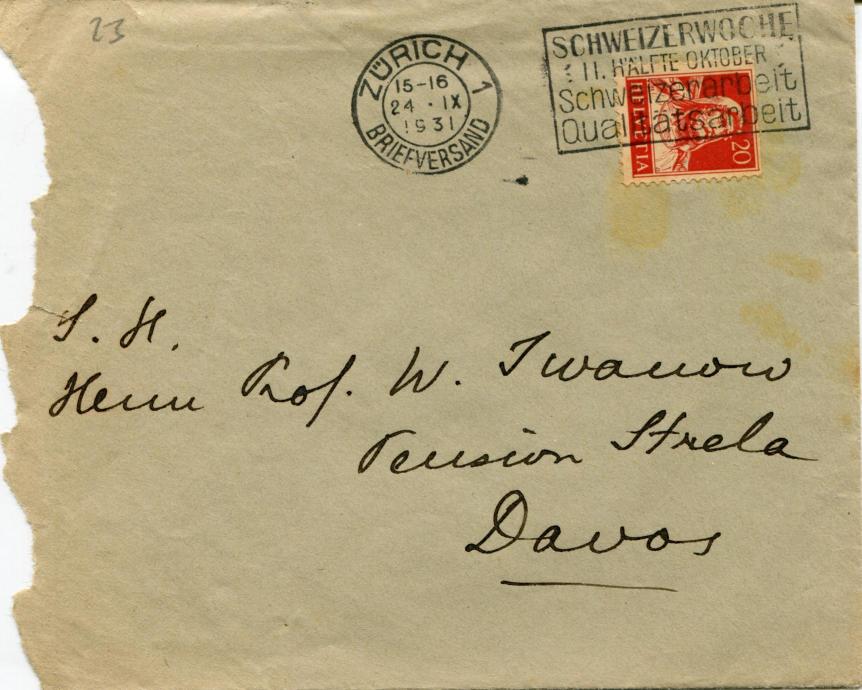 23
ZÜRICH 1
15-16
24 · IX
1931
BRIEFVERSAND
SCHWEIZERWOCHE
II. HÄLFTE OKTOBER
Schweizerarbeit
Qualitätsarbeit
HELVETIA
20
S. H.
Herrn Prof. W. Iwanow
Pension Strela
Davos